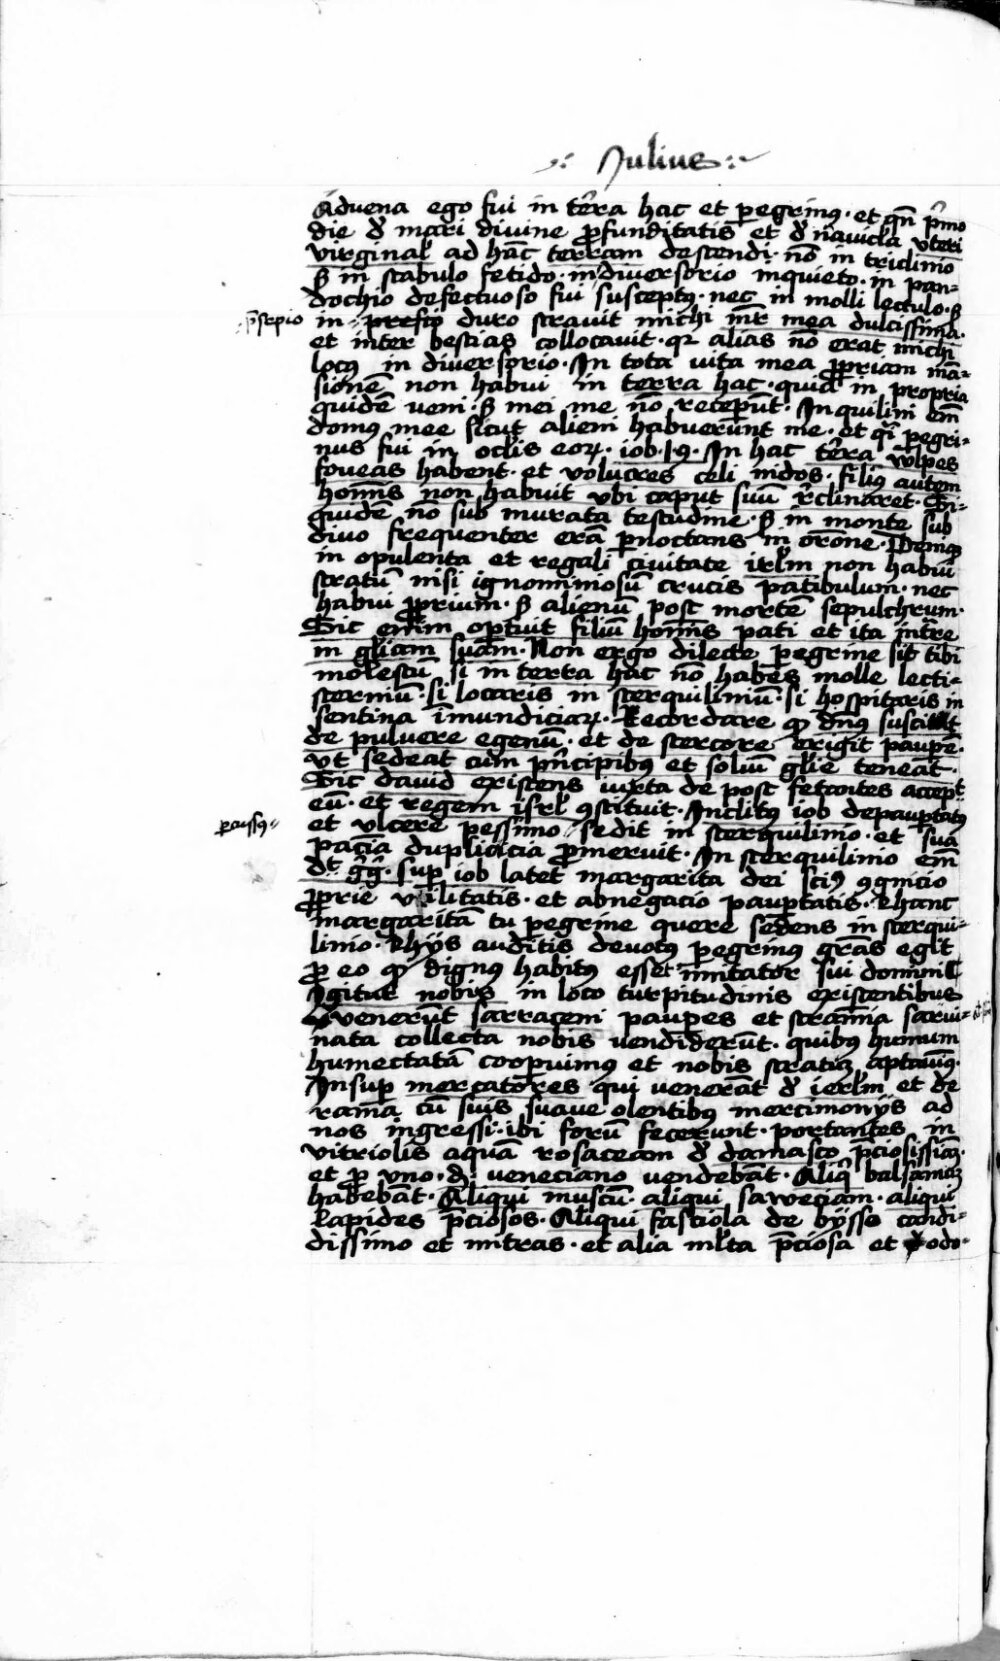 Julius
Advena ego fui in t̄era hac et pegrinꝯ · et qn̄ p̄mo
die d̓ mari divine ꝓfunditatis et d̓ navicl̄a vteri
virginal̓ ad hāc terram descendi · nō in triclinio
ꝫ in stabulo fetido · in diversorio inquieto · in pan-
dochio defectuoso fui susceptꝯ · nec in molli lectulo · ꝫ
p̄sepio
in duro stravit michi mr̄ mea dulcissima ·
et inter bestias collocavit · qr alias nō erat michi
locꝯ in diversorio · In tota vita mea ꝓpriam mā-
sionē non habui in terra hac · quia in propria
quidē veni · ꝫ mei me nō recepūt · Inquilini em̄
domꝯ mee sicut alieni habuerunt me · et q̄i pegri-
nus fui in oclis̄ eoꝝ · iob · 19 · In hac t̄era vlpes
foveas habent · et volucres celi nidos · filiꝯ autem
hom̄is non habuit vbi caput suū r̄clinaret · Si-
quidē nō sub murata testudine · ꝫ in monte sub
divo frequenter erā ꝑnoctans in orōne · Deniqꝫ
in opulenta et regali civitate irl̄m non habui
stratū nisi ignominiosū crucis patibulum · nec
habui ꝓprium · ꝫ alienū post mortē sepulchrum ·
Sic enim oportuit filiū hom̄is pati et ita int̄re
in gl̄iam suam · Non ergo dilecte pegrine sit tibi
molestū si in terra hac nō habes molle lecti-
sterniū · si locaris in sterquiliniū · si hospitaris in
sentina īmundiciaꝝ · Recordare qꝫ dn̄s suscitat
de pulvere egenū · et de stercore erigit paupē ·
vt sedeat cum pn̄cipibꝯ et soliū gl̄ie teneat ·
Sic david existens iuxta de post fetantes accept
eū · et regem isrl̓ ꝯstituit · Inclitꝯ iob depaupatꝯ
ꝑcussꝯ
et vlcere pessimo sedit in sterquilinio · et sua
paciā duplicicia ꝓmervit · In sterquilinio em̄
dt̄ gḡ · sup iob latet margarita dei sciꝫ ꝯgnicio
ꝓprie vilitatis · et abnegacio pauptatis · Et hanc
margaritā tu pegrine quere sedens in sterqui-
linio · Et hijs auditis devotꝯ pegrinꝯ gras egit
ꝓ eo qꝫ dignꝯ habitꝯ esset imitator sui domini
Igitur nobis in loco turpitudinis existentibus
venerūt sarraceni paupes et stramia
nata collecta nobis vendiderūt · quibꝯ humum
humectatā coopuimus et nobis stratū aptavimꝯ ·
Insup mercatores qui venerāt d̓ ierl̄m et de
rama cū suis suave olentibꝯ mercimonijs ad
nos ingressi · ibi forū fecerunt · portantes in
vitriolis aquā rosaceam d̓ damasco p̄ciosissiā ·
et ꝓ vno · d · veneciano vendebāt · Aliq̄ balsamū
habebāt · Aliqui muscū · aliqui saweciam · aliqui
lapides p̄ciosos · Aliqui fasciola de bysso candi-
dissimo et mitras · et alia ml̄ta p̄ciosa et odo-